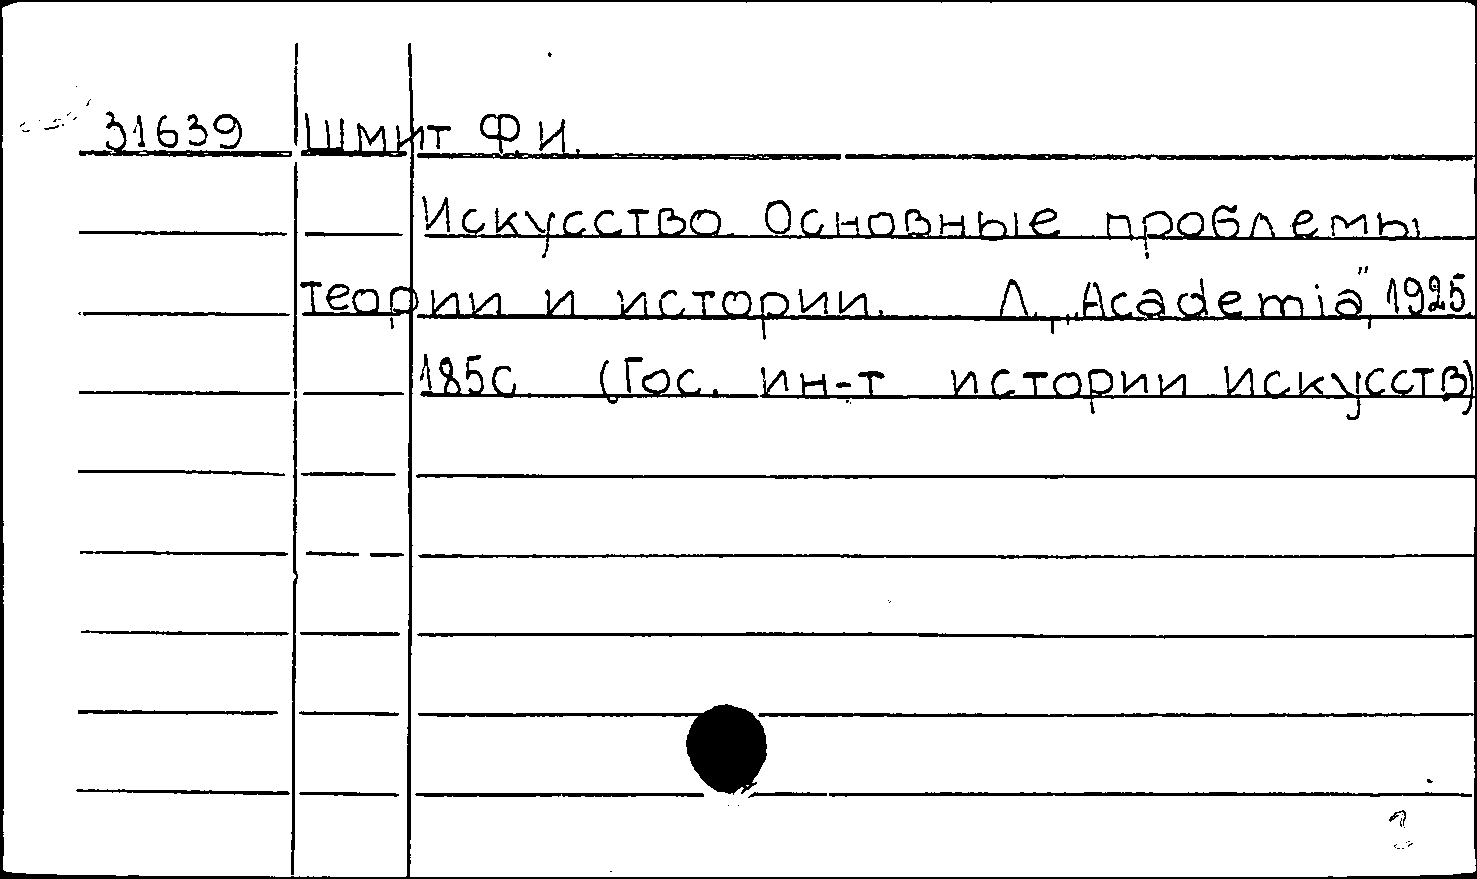 31639 Шмит Ф.И.
Искусство. Основные проблемы
теории и истории. Л., „Academia", 1925
185с. (Гос. ин-т истории искусств)